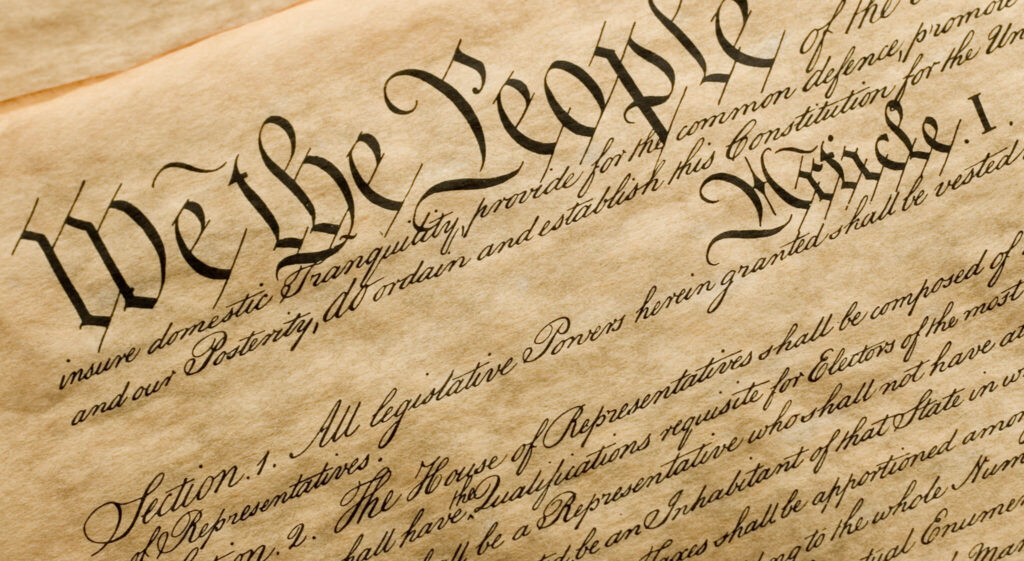 We the People
of the
insure domestic Tranquility, provide for the common defence, promote
and our Posterity, do ordain and establish this Constitution for the Un
Article. I.
Section. 1. All legislative Powers herein granted shall be vested
of Representatives.
tion. 2. The House of Representatives shall be composed of
the
hall have Qualifications requisite for Electors of the most
ll be a Representative who shall not have at
ed be an Inhabitant of that State in w
Taxes shall be apportioned amon
ding to the whole Num
tual Enumer